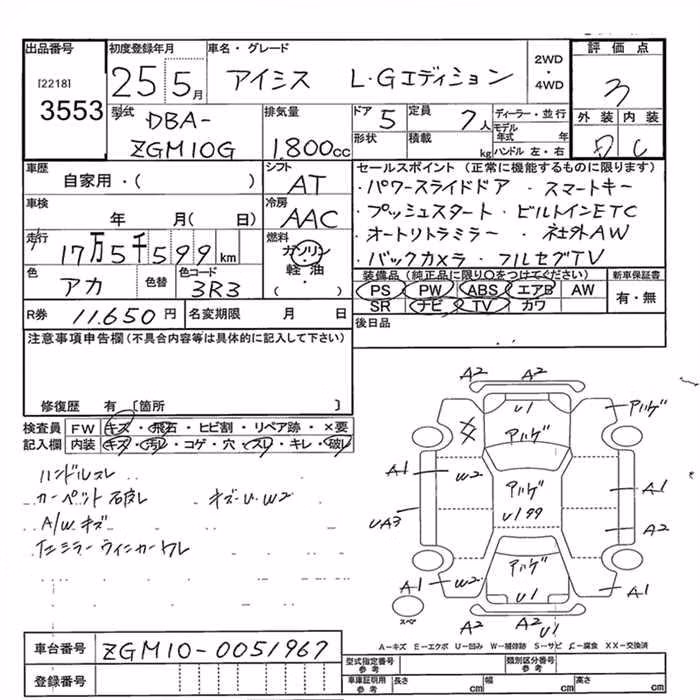 出品番号 初度登録年月 車名・グレード 2WD・4WD 評価点
[2218] 3553 25 5月 アイシス L・Gエディション 3
型式 DBA-ZGM10G 排気量 1,800cc ドア 5 定員 7人 ディーラー・並行 外装 内装
形状 積載 kg モデル年式 年 ハンドル 左・右 C
車歴 シフト セールスポイント (正常に機能するものに限ります)
自家用・( ) AT ・パワースライドドア ・スマートキー
車検 冷房 ・プッシュスタート ・ビルトインETC
年 月( 日) AAC ・オートリトラミラー ・社外AW
走行 燃料 ・バックカメラ ・フルセグTV
17万5千599km ガソリン・軽油・( )
色 色替 色コード 装備品 (純正品に限り○をつけてください) 新車保証書
アカ 3R3 PS PW ABS エアB AW 有・無
R券 11,650円 名変期限 月 日 SR ナビ TV カワ
注意事項申告欄 (不具合内容等は具体的に記入して下さい) 後日品
修復歴 有 [箇所 ]
検査員 FW キズ・飛石・ヒビ割・リペア跡・×要
記入欄 内装 キズ・汚レ・コゲ・穴・スレ・キレ・破レ
ハンドルスレ
カーペット破レ キズ・U・W2
A/Wキズ
左ミラーウィンカーワレ
A2 A2
U1 アハゲ
アハゲ
A1 W2 アハゲ A1
UA3 U199 A2
アハゲ
A1 W2 A1
スペア A2 A2 U1
A-キズ E-エクボ U-凹み W-補修跡 S-サビ C-腐食 XX-交換済
車台番号 ZGM10-0051967
登録番号
型式指定番号 参考 類別区分番号 参考
車庫証明用 参考 長さ cm 幅 cm 高さ cm